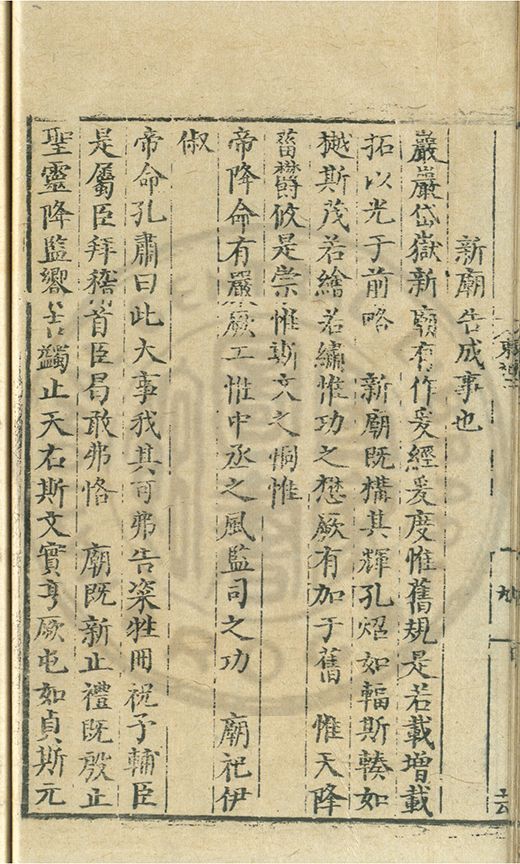 新廟告成事也
巖巖岱嶽新廟有作爰經爰度惟舊規是若載增載
拓以光于前略 新廟既構其輝孔炤如輻斯輳如
樾斯茂若繪若繡惟功之懋厥有加于舊 惟天降
菑欝攸是崇惟斯文之恫惟
帝降命有嚴厥工惟中丞之風監司之功 廟祀伊
俶
帝命孔肅曰此大事我其可弗告粢牲冊祝予輔臣
是屬臣拜稽首臣曷敢弗恪 廟既新止禮既殷止
聖靈降監嚮吉蠲止天右斯文實亨厥屯如貞斯元